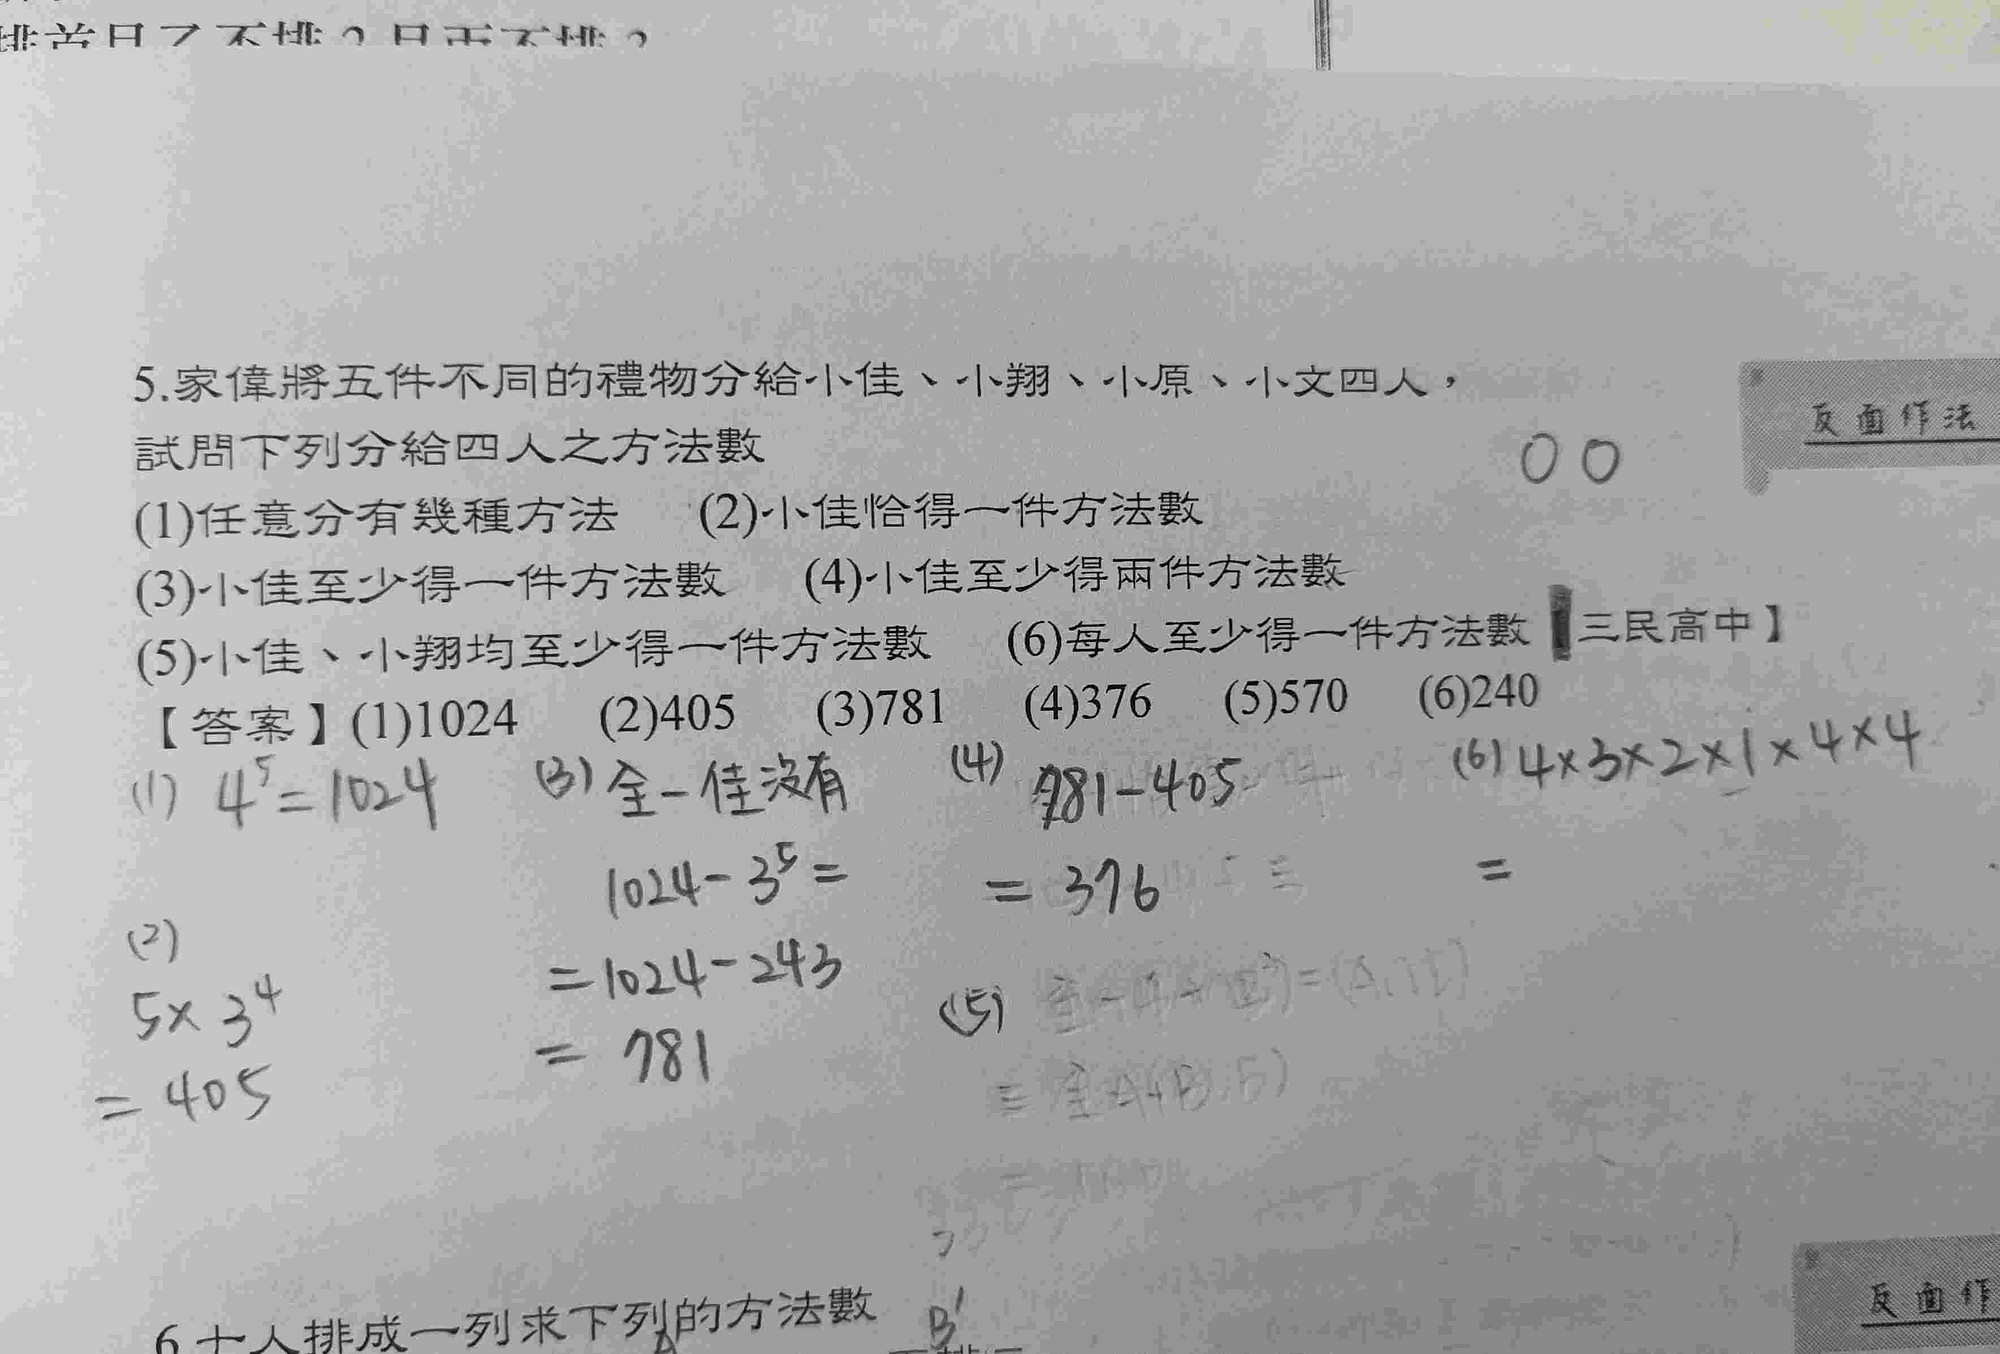 5.家偉將五件不同的禮物分給小佳、小翔、小原、小文四人，
反面作法
試問下列分給四人之方法數
(1)任意分有幾種方法 (2)小佳恰得一件方法數
(3)小佳至少得一件方法數 (4)小佳至少得兩件方法數
(5)小佳、小翔均至少得一件方法數 (6)每人至少得一件方法數【三民高中】
【答案】(1)1024 (2)405 (3)781 (4)376 (5)570 (6)240
(1) 4⁵=1024
(2)
5×3⁴
=405
(3) 全-佳沒有
1024-3⁵=
=1024-243
= 781
(4) 781-405
= 376
(5)
(6) 4×3×2×1×4×4
=
6.十人排成一列求下列的方法數
B'
反面作